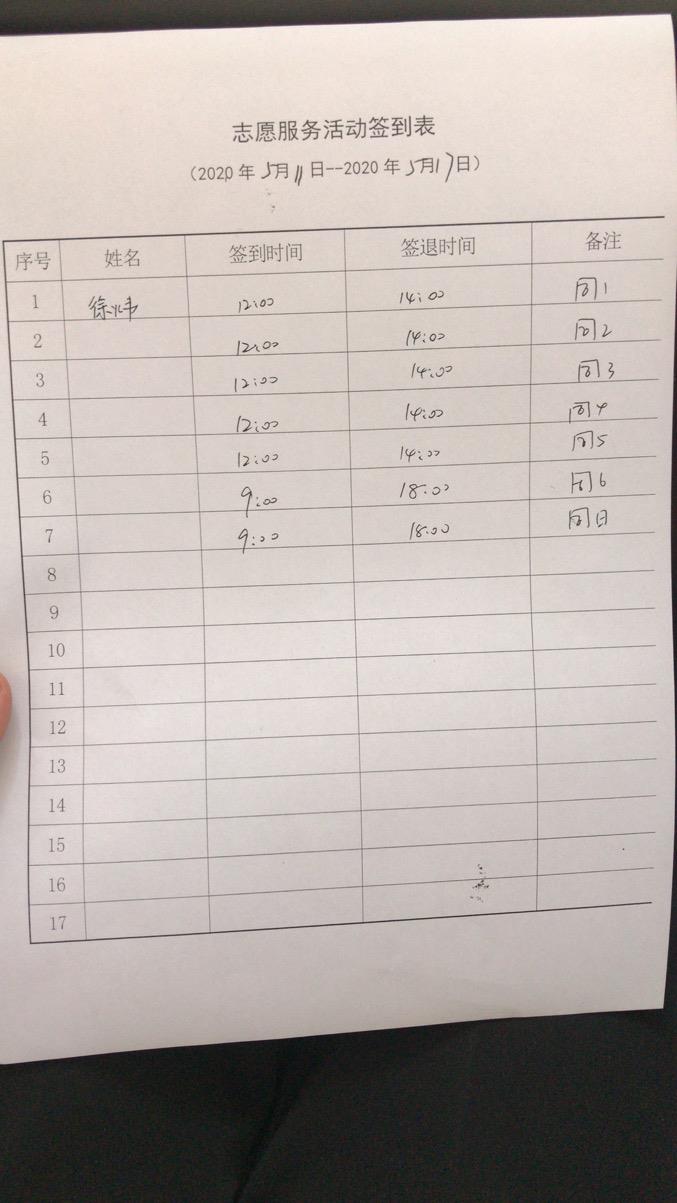 志愿服务活动签到表
（2020 年 5月 11 日--2020 年 5月17日）
序号 姓名 签到时间 签退时间 备注
1 徐炜 12:00 14:00 周1
2 12:00 14:00 周2
3 12:00 14:00 周3
4 12:00 14:00 周4
5 12:00 14:00 周5
6 9:00 18:00 周6
7 9:00 18:00 周日
8
9
10
11
12
13
14
15
16
17